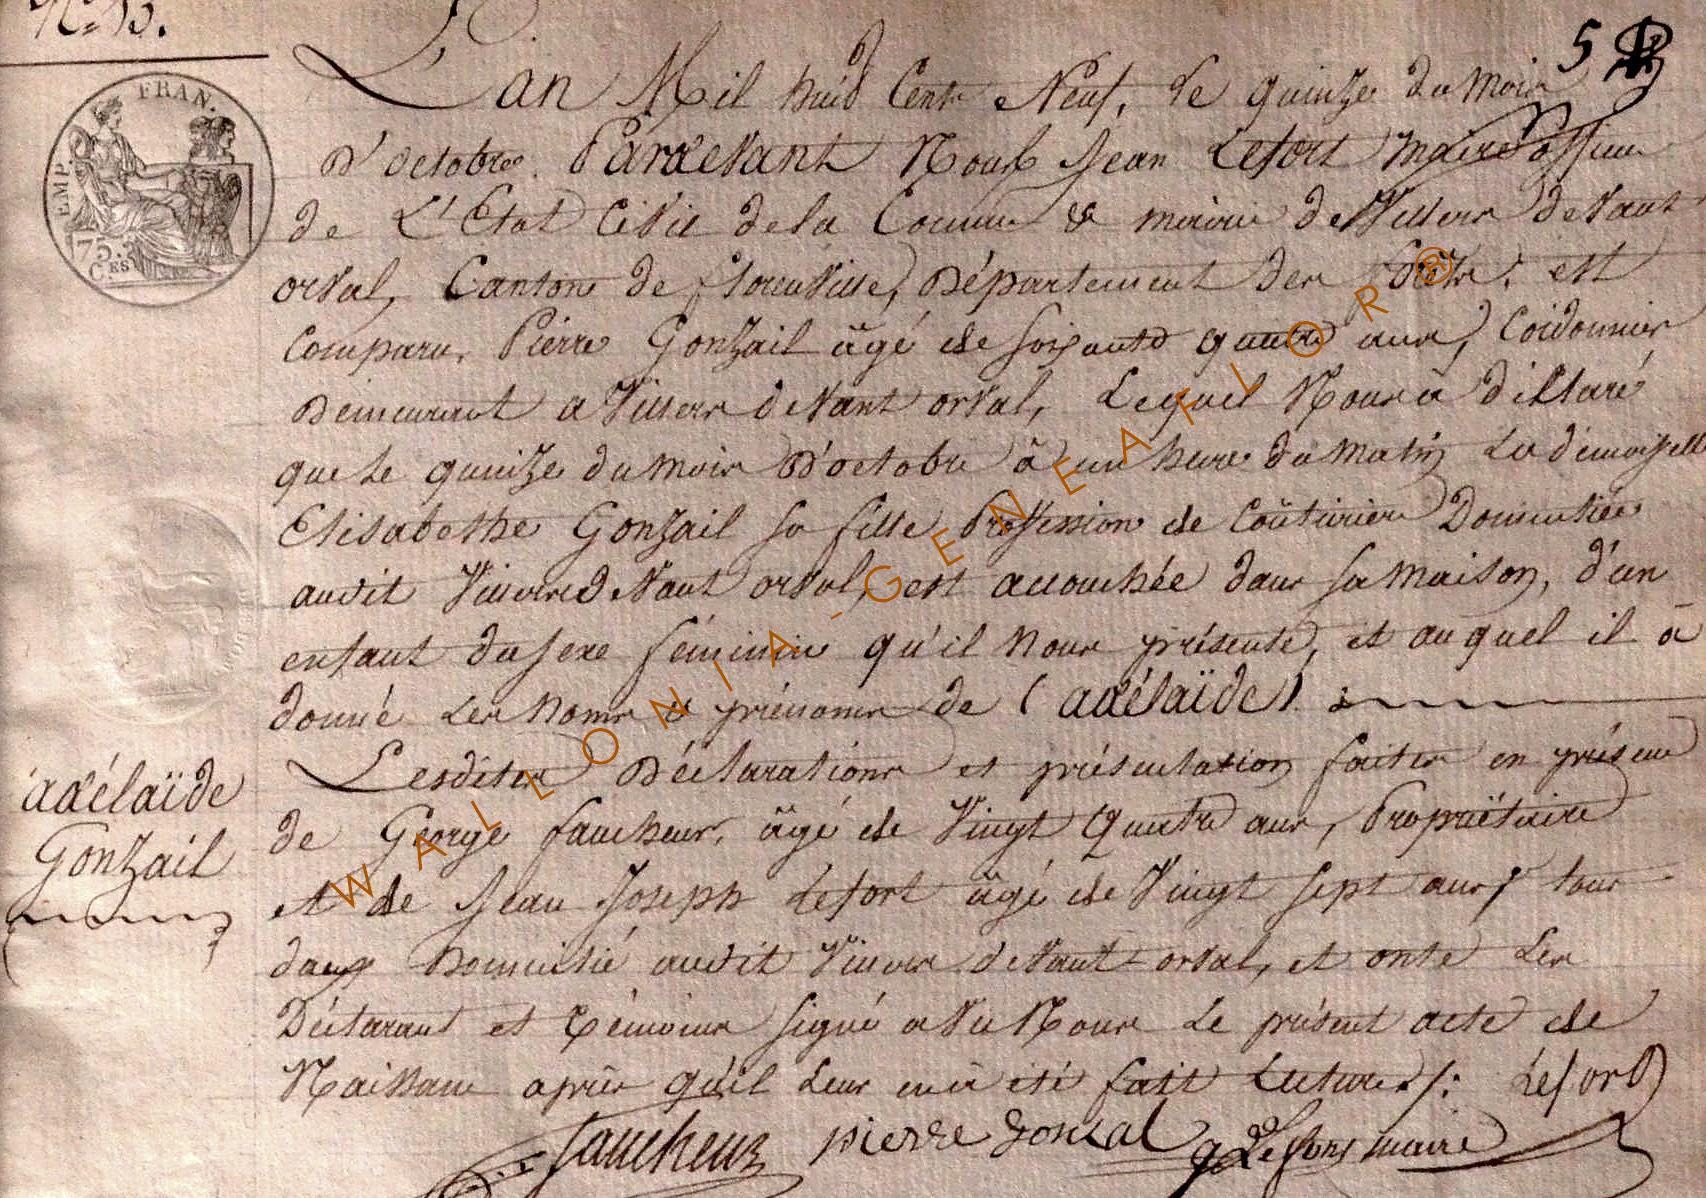 N.° 15.
5
FRAN.
EMP.
75.
C.ES
L'an Mil huit Cent Neuf, le quinze du mois
D'octobre. Pardevant Nous Jean Lefort maire officier
de L'Etat Civil de la Commune & mairie de Villers devant
orval, Canton de florenville, Département des forêts, est
Comparu, Pierre Gonzail âgé de soixante quatre ans, Coidonnier
Demeurant a Villers devant orval, Lequel Nous a déklaré
que le quinze du mois D'octobre à un heure du matin La démoiselle
Elisabethe Gonzail sa fille Profession de Coûturière Domiciliée
audit Villers devant orval, est accouchée dans sa maison, d'un
enfant du sexe féminin qu'il nous présente, et auquel il à
donné Les noms & prénoms de (adélaïde)
Lesdites Déclarations et présentation faites en présence
de George faucheur, âgé de Vingt quatre ans, Propriétaire
et de Jean Joseph Lefort âgé de Vingt sept ans, tous
deux Domicilié audit Villers devant orval, et onte Les
Déclarant et témoins signé avec Nous Le présent acte de
Naissance après qu'il Leur en à été fait Lecture ./: Lefort
faucheur pierre gonzal Lefort maire
adélaïde
Gonzail
WALLONIA-GENEAFLOR®